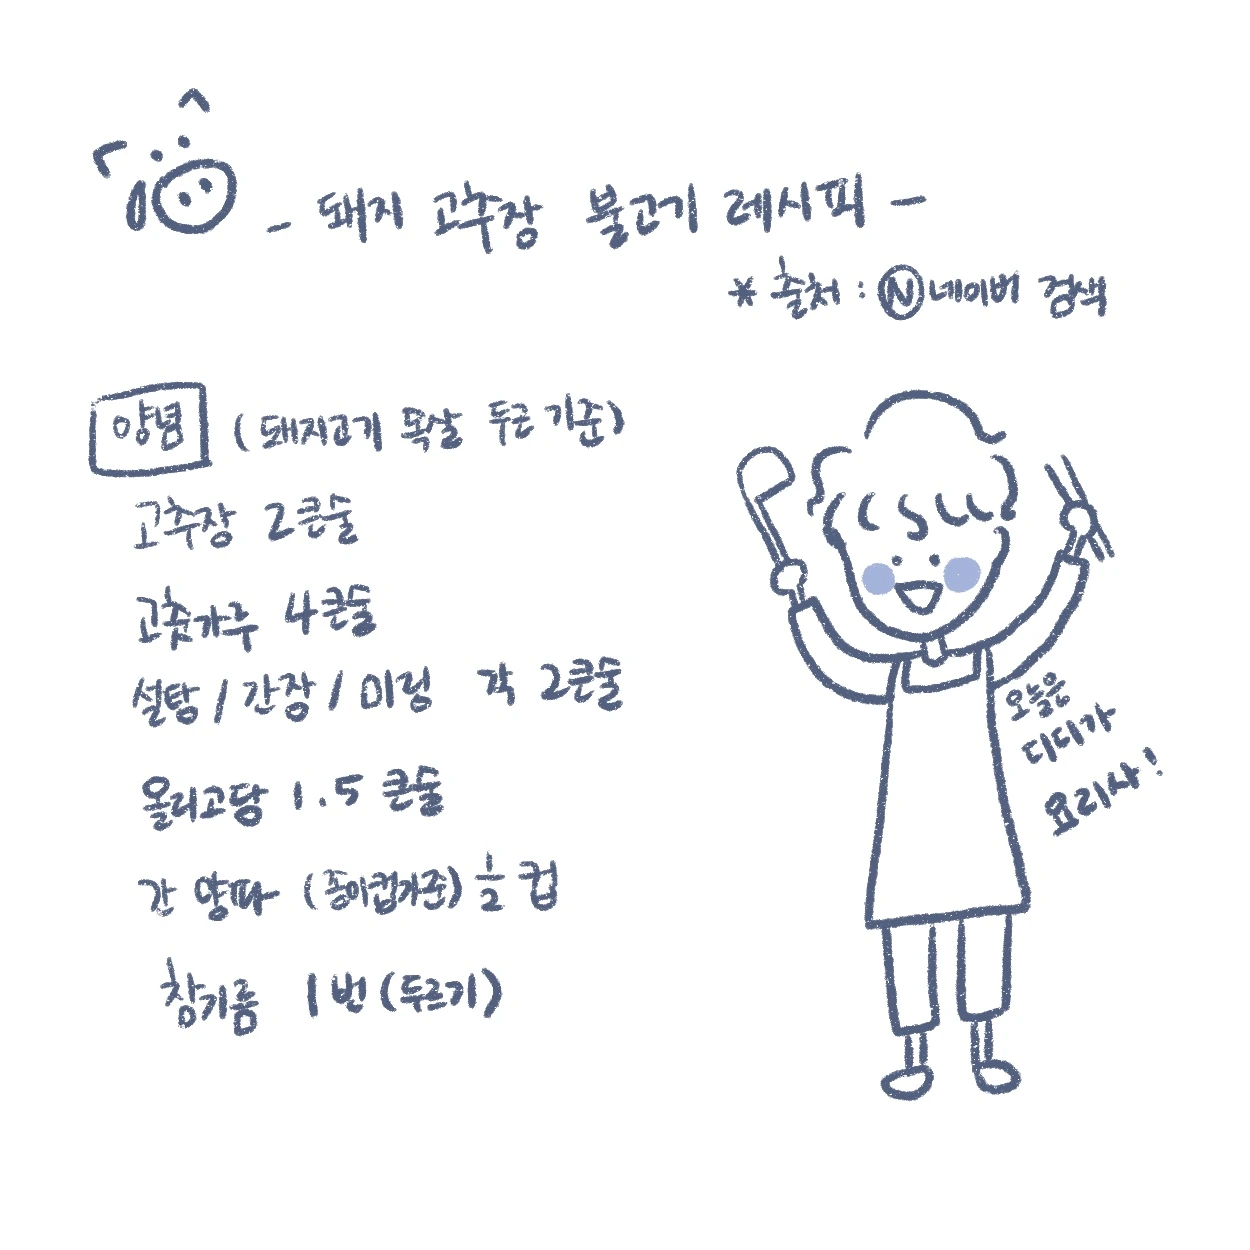 - 돼지 고추장 불고기 레시피 -
* 출처 : N 네이버 검색
양념 (돼지고기 목살 두근 기준)
고추장 2큰술
고춧가루 4큰술
설탕 / 간장 / 미림 각 2큰술
올리고당 1.5 큰술
간 양파 (종이컵기준) 1/2 컵
참기름 1번 (두르기)
오늘은
디디가
요리사!